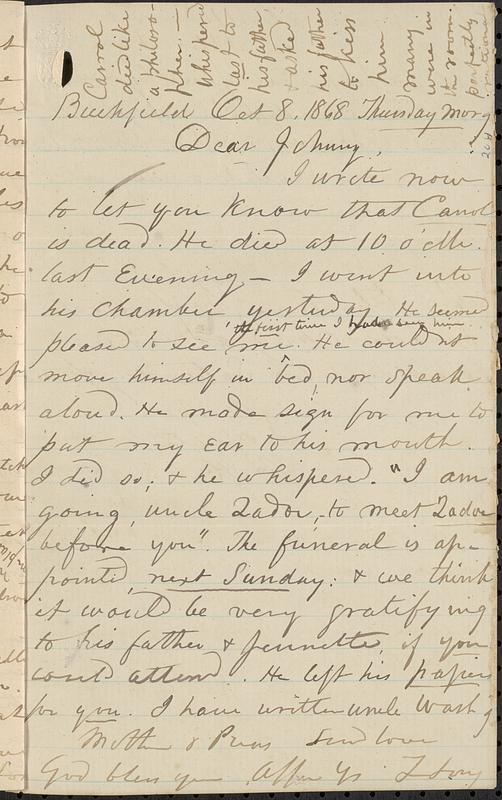 Buckfield Oct 8, 1868 Thursday Morg
Dear Johnny,
I write now
to let you know that Carrol
is dead. He died at 10 o'clk.
last Evening – I went into
his chamber yesterday. He seemed
the first time I had seen him
pleased to see me. He couldnt
move himself in bed, nor speak
aloud. He made sign for me to
put my ear to his mouth.
I did so; & he whispered. "I am
going, uncle Zadoc, to meet Zadoc
before you". The funeral is ap-
pointed, next Sunday: & we think
it would be very gratifying
to his father & Jennette, if you
could attend. He left his papers
for you. I have written uncle Wash'g
Mother & Prus send love
God bless you Affn Ys Z Long
Carrol
died like
a philoso-
pher. –
whispered
last to
his father
& asked
his father
to kiss
him
many
were in
the room.
perfectly
rational